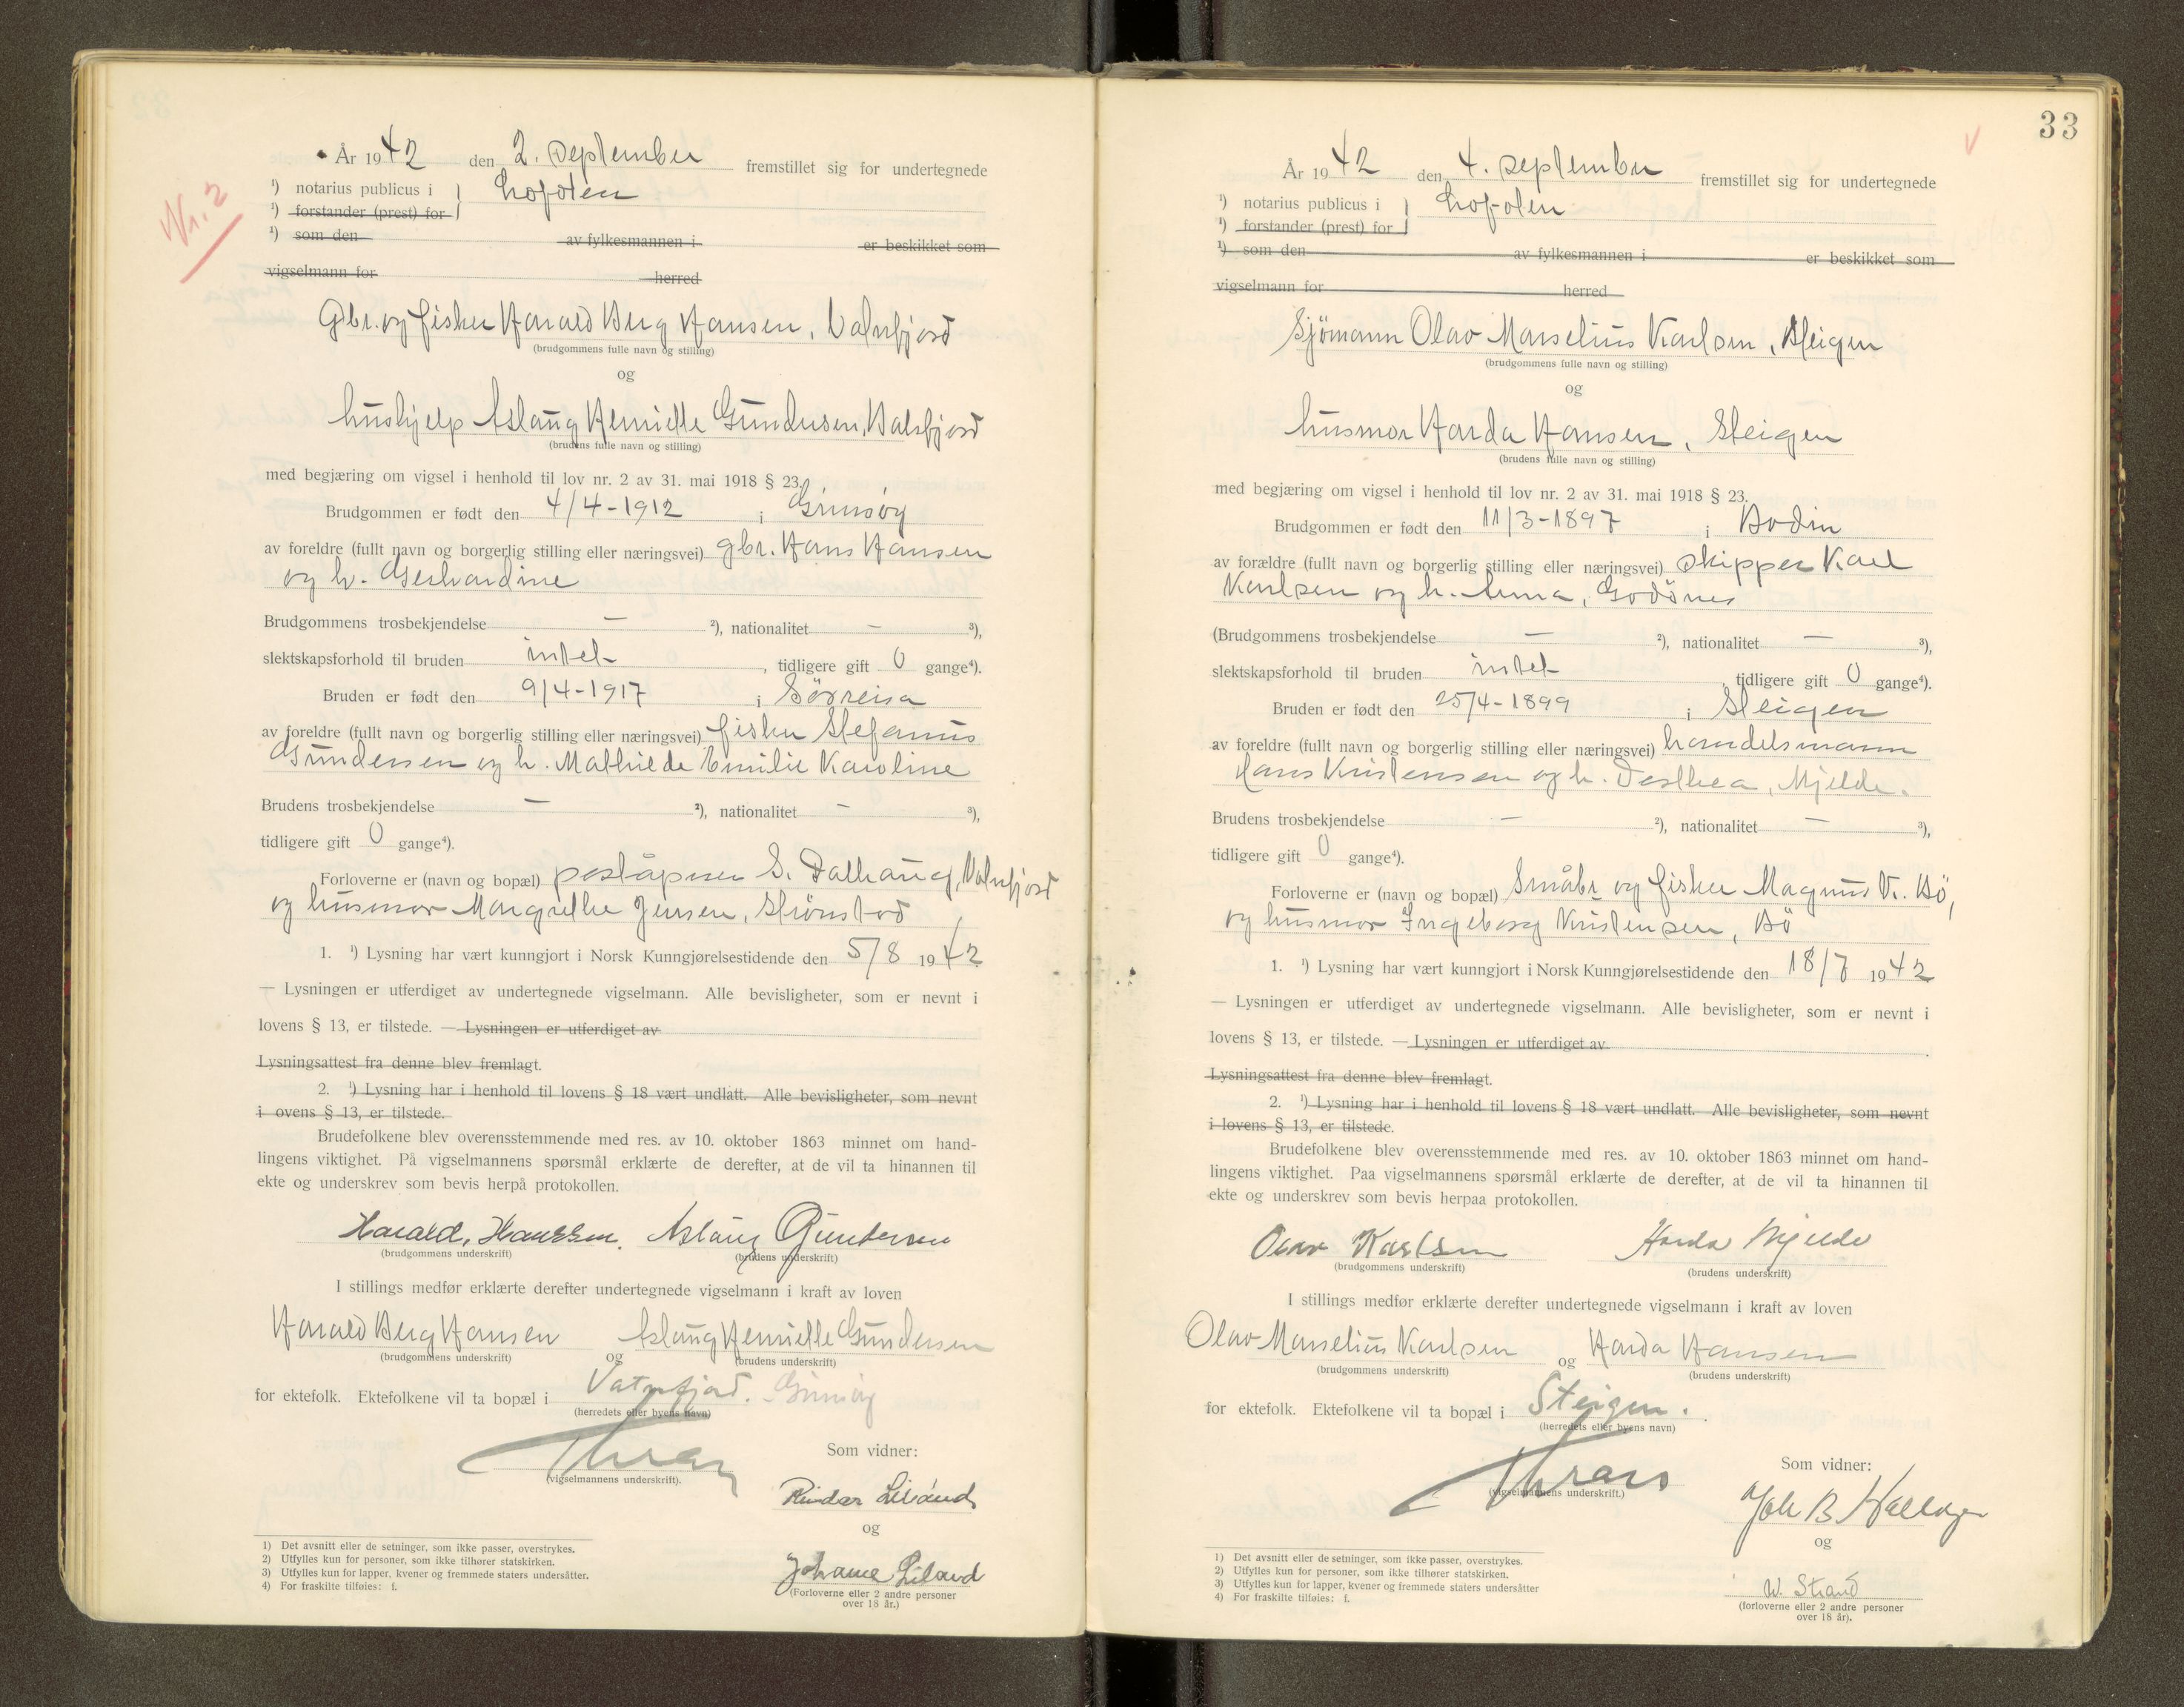 Nr. 2
År 1942 den 2. september fremstillet sig for undertegnede
¹) notarius publicus i } Lofoten
¹) forstander (prest) for
¹) som den av fylkesmannen i er beskikket som
vigselmann for herred
Gbr. og fisker Harald Berg Hansen, Vatnfjord
(brudgommens fulle navn og stilling)
og
hushjelp Aslaug Henriette Gundersen, Vatnfjord
(brudens fulle navn og stilling)
med begjæring om vigsel i henhold til lov nr. 2 av 31. mai 1918 § 23.
Brudgommen er født den 4/4-1912 i Gimsøy
av foreldre (fullt navn og borgerlig stilling eller næringsvei) gbr. Hans Hansen
og h. Gerhardine
Brudgommens trosbekjendelse — ²), nationalitet — ³),
slektskapsforhold til bruden intet, tidligere gift 0 gange⁴).
Bruden er født den 9/4-1917 i Sørreisa
av foreldre (fullt navn og borgerlig stilling eller næringsvei) fisker Stefanus
Gundersen og h. Mathilde Emilie Karoline
Brudens trosbekjendelse — ²), nationalitet — ³),
tidligere gift 0 gange⁴).
Forloverne er (navn og bopæl) poståpner S. Dalhaug, Vatnfjord
og husmor Margrethe Jensen, Strønstad
1. ¹) Lysning har vært kunngjort i Norsk Kunngjørelsestidende den 5/8 1942
— Lysningen er utferdiget av undertegnede vigselmann. Alle bevisligheter, som er nevnt i
lovens § 13, er tilstede. — Lysningen er utferdiget av
Lysningsattest fra denne blev fremlagt.
2. ¹) Lysning har i henhold til lovens § 18 vært undlatt. Alle bevisligheter, som nevnt
i ovens § 13, er tilstede.
Brudefolkene blev overensstemmende med res. av 10. oktober 1863 minnet om hand-
lingens viktighet. På vigselmannens spørsmål erklærte de derefter, at de vil ta hinannen til
ekte og underskrev som bevis herpå protokollen.
Harald Hanssen. Aslaug Gundersen
(brudgommens underskrift) (brudens underskrift)
I stillings medfør erklærte derefter undertegnede vigselmann i kraft av loven
Harald Berg Hansen og Aslaug Henriette Gundersen
(brudgommens underskrift) (brudens underskrift)
for ektefolk. Ektefolkene vil ta bopæl i Vatnfjord. Gimsøy
(herredets eller byens navn)
(vigselmannens underskrift).
Som vidner:
Reidar Liland
og
Johanne Liland
(Forloverne eller 2 andre personer
over 18 år.)
1) Det avsnitt eller de setninger, som ikke passer, overstrykes.
2) Utfylles kun for personer, som ikke tilhører statskirken.
3) Utfylles kun for lapper, kvener og fremmede staters undersåtter.
4) For fraskilte tilføies: f.
33
År 1942 den 4. september fremstillet sig for undertegnede
¹) notarius publicus i } Lofoten
¹) forstander (prest) for
¹) som den av fylkesmannen i er beskikket som
vigselmann for herred
Sjømann Olav Marselius Karlsen, Steigen
(brudgommens fulle navn og stilling)
og
husmor Harda Hansen, Steigen
(brudens fulle navn og stilling)
med begjæring om vigsel i henhold til lov nr. 2 av 31. mai 1918 § 23.
Brudgommen er født den 11/3-1897 i Bodin
av forældre (fullt navn og borgerlig stilling eller næringsvei) skipper Karl
Karlsen og h. Anna, Godønes
(Brudgommens trosbekjendelse — ²), nationalitet — ³),
slektskapsforhold til bruden intet, tidligere gift 0 gange⁴).
Bruden er født den 25/4-1899 i Steigen
av foreldre (fullt navn og borgerlig stilling eller næringsvei) handelsmann
Hans Kristensen og h. Dorthea, Mjelde.
Brudens trosbekjendelse — ²), nationalitet — ³),
tidligere gift 0 gange⁴).
Forloverne er (navn og bopæl) Småbr og fisker Magnus Kr. Bö,
og husmor Ingeborg Kristensen, Bö
1. ¹) Lysning har vært kunngjort i Norsk Kunngjørelsestidende den 18/7 1942
— Lysningen er utferdiget av undertegnede vigselmann. Alle bevisligheter, som er nevnt i
lovens § 13, er tilstede. — Lysningen er utferdiget av
Lysningsattest fra denne blev fremlagt.
2. ¹) Lysning har i henhold til lovens § 18 vært undlatt. Alle bevisligheter, som nevnt
i lovens § 13, er tilstede.
Brudefolkene blev overensstemmende med res. av 10. oktober 1863 minnet om hand-
lingens viktighet. Paa vigselmannens spørsmål erklærte de derefter, at de vil ta hinannen til
ekte og underskrev som bevis herpaa protokollen.
Olav Karlsen Harda Mjelde
(brudgommens underskrift) (brudens underskrift)
I stillings medfør erklærte derefter undertegnede vigselmann i kraft av loven
Olav Marselius Karlsen og Harda Hansen
(brudgommens underskrift) (brudens underskrift)
for ektefolk. Ektefolkene vil ta bopæl i Steigen.
(herredets eller byens navn)
(vigselmannens underskrift.)
Som vidner:
Joh B
og
W. Strand
(forloverne eller 2 andre personer
over 18 år).
1) Det avsnitt eller de setninger, som ikke passer, overstrykes.
2) Utfylles kun for personer, som ikke tilhører statskirken.
3) Utfylles kun for lapper, kvener og fremmede staters undersåtter
4) For fraskilte tilføies: f.